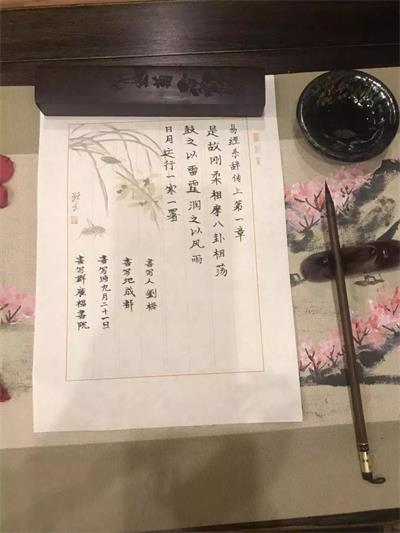 易經系辞传上第一章
是故刚柔相摩八卦相荡
鼓之以雷霆润之以风雨
日月运行一寒一署
書写人劉
書写地成都
書写时九月二十一日
書写群廣福書院